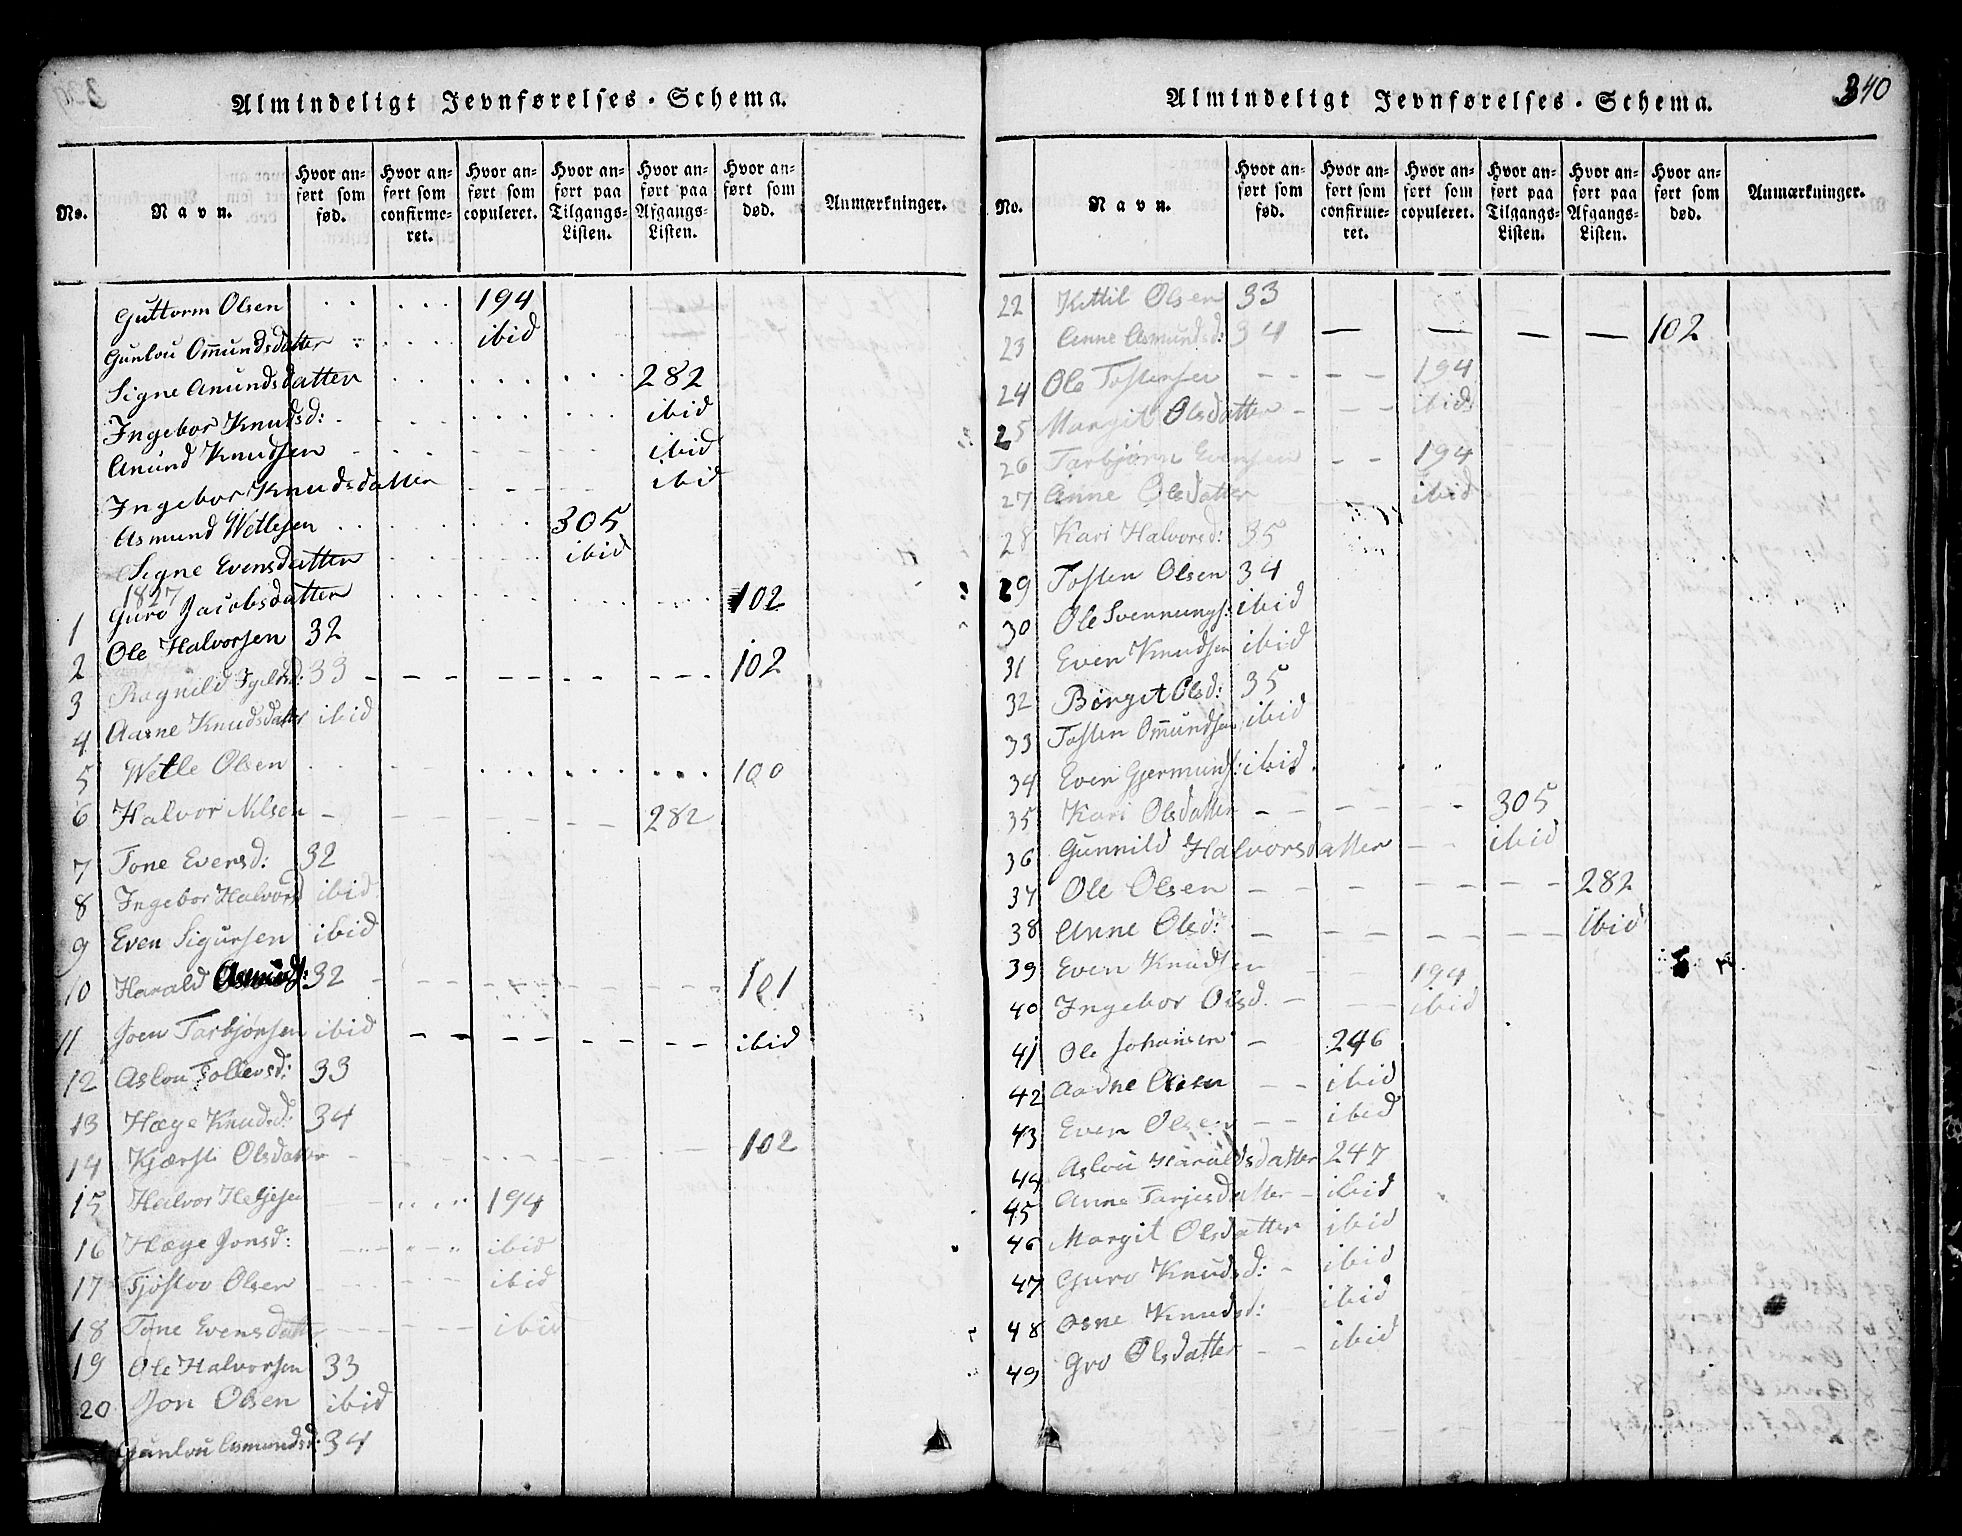 Almindeligt Jevnførelses-Schema.
No. | Navn. | Hvor anført som fød. | Hvor anført som confirmeret. | Hvor anført som copuleret. | Hvor anført paa Tilgangs-Listen. | Hvor anført paa Afgangs-Listen. | Hvor anført som død. | Anmærkninger.
Guttorm Olsen 194
Gunlou Om̅undsdatter ibid
Signe Anundsdatter 282
Ingebor Knudsd: ibid
Anund Knudsen ibid
Ingebor Knudsdatter ibid
Asmund Wetlesen 305
Signe Evensdatter ibid
1827
1 Guro Jacobsdatter 102
2 Ole Halvorsen 32
3 Ragnild 33 102
4 Aasne Knudsdatter ibid
5 Wetle Olsen 100
6 Halvor Nilsen 282
7 Tone Evensd: 32
8 Ingebor Halvorsd ibid
9 Even Sigursen ibid
10 Harald Asmuds: 32 101
11 Joen Tarbjørsen ibid ibid
12 Aslou Tollevsd: 33
13 Hæge Knudsd: 34
14 Kjærsti Olsdatter 102
15 Halvor Heljesen 194
16 Hæge Jonsd: ibid
17 Tjøstov Olsen ibid
18 Tone Evensdatter ibid
19 Ole Halvorsen 33
20 Jon Olsen ibid
Gunlou Asmundsd: 34
340
Almindeligt Jevnførelses-Schema.
No. | Navn. | Hvor anført som fød. | Hvor anført som confirmeret. | Hvor anført som copuleret. | Hvor anført paa Tilgangs-Listen. | Hvor anført paa Afgangs-Listen. | Hvor anført som død. | Anmærkninger.
22 Kittil Olsen 33
23 Anne Asmundsd: 34 102
24 Ole Tostensen 194
25 Margit Olsdatter ibid
26 Tarbjørn Evensen 194
27 Anne Olsdatter ibid
28 Kari Halvorsd: 35
29 Tosten Olsen 34
30 Ole Svennungs: ibid
31 Even Knudsen ibid
32 Birget Olsd: 35
33 Tosten Om̅undsen ibid
34 Even Gjermunds: ibid.
35 Kari Olsdatter 305
36 Gunnild Halvorsdatter ibid
37 Ole Olsen 282
38 Anne Olsd: ibid
39 Even Knudsen 194
40 Ingebor Olsd. ibid
41 Ole Johansen 246
42 Aadne Olsen ibid
43 Even Olsen ibid
44 Aslou Haraldsdatter 247
45 Anne Tarjesdatter ibid
46 Margit Olsdatter ibid
47 Guro Knudsd: ibid
48 Osne Knudsd: ibid
49 Gro Olsdatter ibid